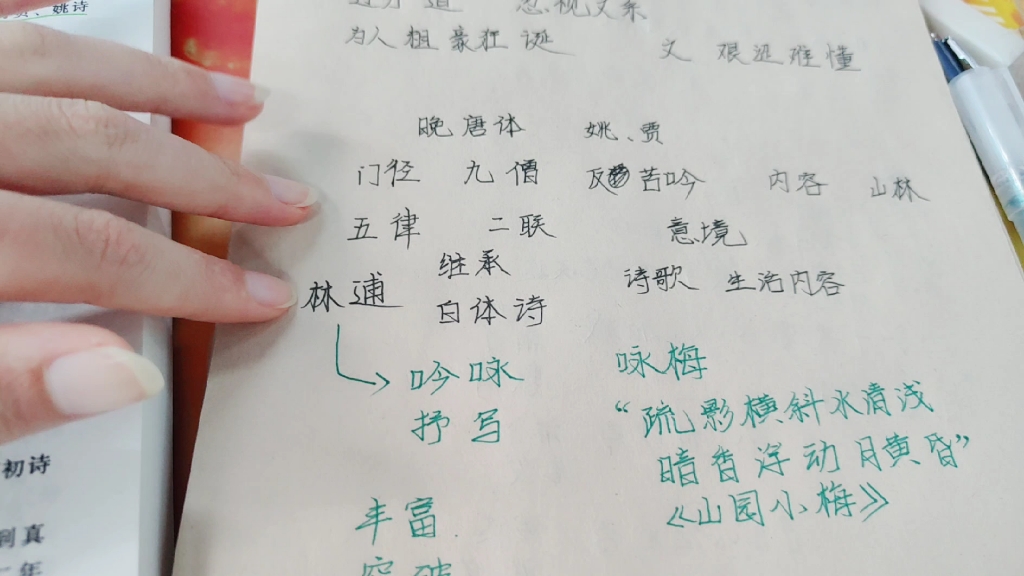 、姚诗
忽视文系
为人粗豪狂诞 文 艰涩难懂
晚唐体 姚、贾
门径 九僧 反 苦吟 内容 山林
五律 二联 意境
林逋 继承 诗歌 生活内容
白体诗
吟咏 咏梅
抒写 “疏影横斜水清浅
暗香浮动月黄昏”
丰富 《山园小梅》
突破
初诗
到真
年